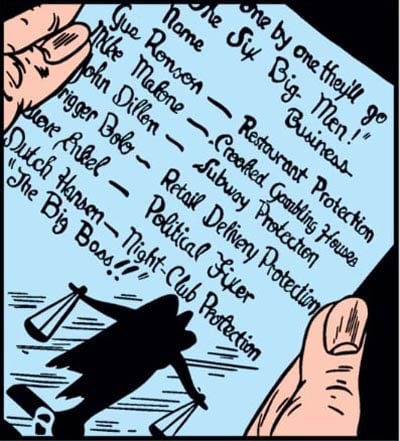 One by one they'll go
The Six Big Men!"
Name Business
Gus Ronson — Restaurant Protection
Mike Malone — Crooked Gambling Houses
John Dillon — Subway Protection
Trigger Bolo — Retail Delivery Protection
Steve Enkel — Political Fixer
Dutch Hansen — Night-Club Protection
"The Big Boss!!"